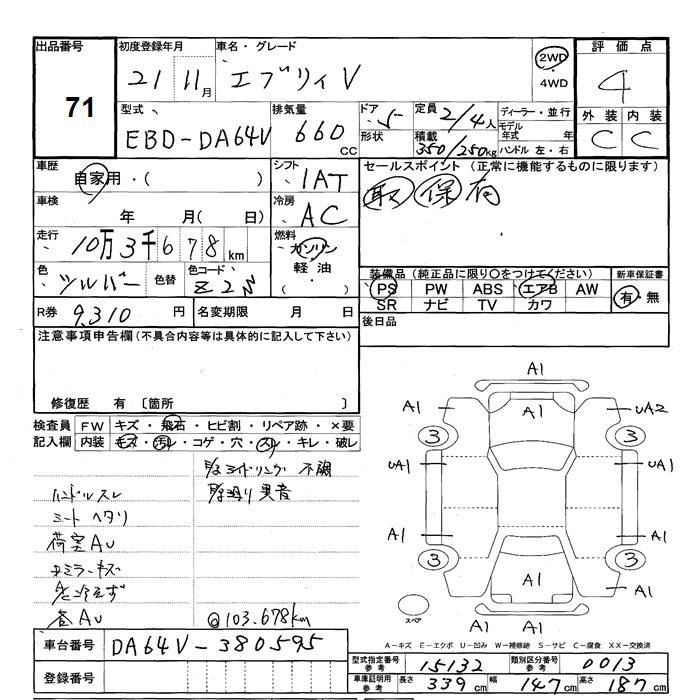 出品番号 初度登録年月 車名・グレード 評価点
71 21 11月 エブリィV 2WD 4
・4WD
型式 排気量 ドア 定員 ディーラー・並行 外装 内装
EBD-DA64V 660cc 5 2/4人 モデル年式 年 C C
形状 積載 350/250kg ハンドル 左・右
車歴 自家用・( ) シフト IAT セールスポイント (正常に機能するものに限ります)
車検 年 月(日) 冷房 AC 取 保 有
走行 10万3千678km 燃料 ガソリン
軽油・( )
色 シルバー 色替 色コード Z2S
装備品 (純正品に限り〇をつけてください) 新車保証書
PS PW ABS エアB AW 有・無
SR ナビ TV カワ
R券 9,310円 名変期限 月 日 後日品
注意事項申告欄 (不具合内容等は具体的に記入して下さい)
修復歴 有 〔箇所
検査員 FW キズ・飛石・ヒビ割・リペア跡・×要
記入欄 内装 キズ・汚レ・コゲ・穴・スレ・キレ・破レ
アイドリング 不調
異音
ハンドルスレ
シート ヘタリ
荷室AU
AU
@103.678km
A1
A1 A1 UA2
3 3
UA1 UA1
A1 A1
3 3
A1 A1 A1
スペア
A1 A1
A-キズ E-エクボ U-凹み W-補修跡 S-サビ C-腐食 XX-交換済
車台番号 DA64V-380595
登録番号
型式指定番号 参考 15132 類別区分番号 参考 0013
車庫証明用 参考 長さ 339cm 幅 147cm 高さ 187cm